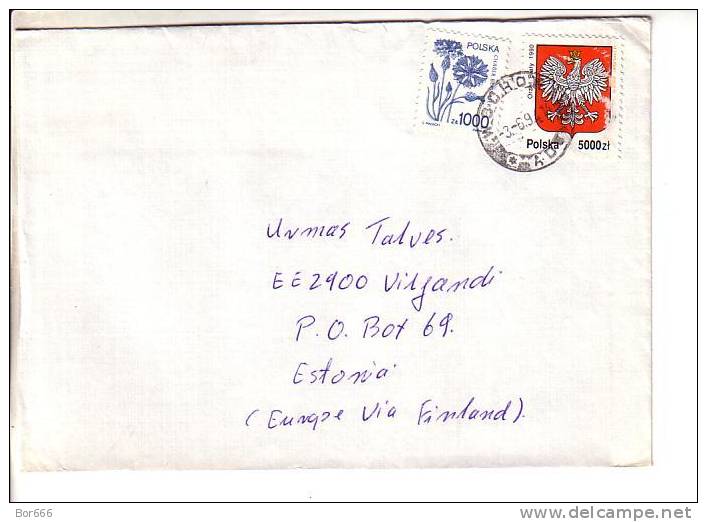 POLSKA
zł 1000
Orzeł Biały 1990
Polska 5000zł
-3.-6.9
Urmas Talves.
EE2900 Viljandi
P.O. Box 69.
Estonia
(Europe Via Finland).
Bor666
www.delcampe.net